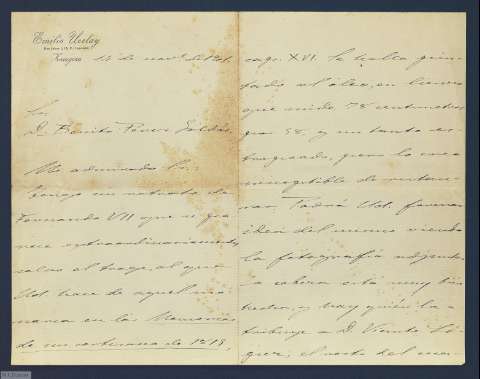 Emilio Ucelay
Zaragoza
14 de nov.e de
Sr.
D. Benito Pérez Galdós
Mi admirado Sr.:
Tengo un retrato de
Fernando VII que si pa-
rece extraordinariamente,
salvo el traje, al que
Ud. hace de aquel mo-
narca en las Memorias
de un cortesano de 1815,
cap. XVI. Se halla pin-
tado al óleo, en lienzo
que mide 78 centímetros
por 58, y un tanto es-
tropeado, pero lo creo
susceptible de restau-
rar. Podrá Ud. formar
idea del mismo viendo
la fotografía adjunta.
La cabeza está muy bien
hecha, y hay quién la a-
tribuye a D. Vicente Ló-
pez, el resto del